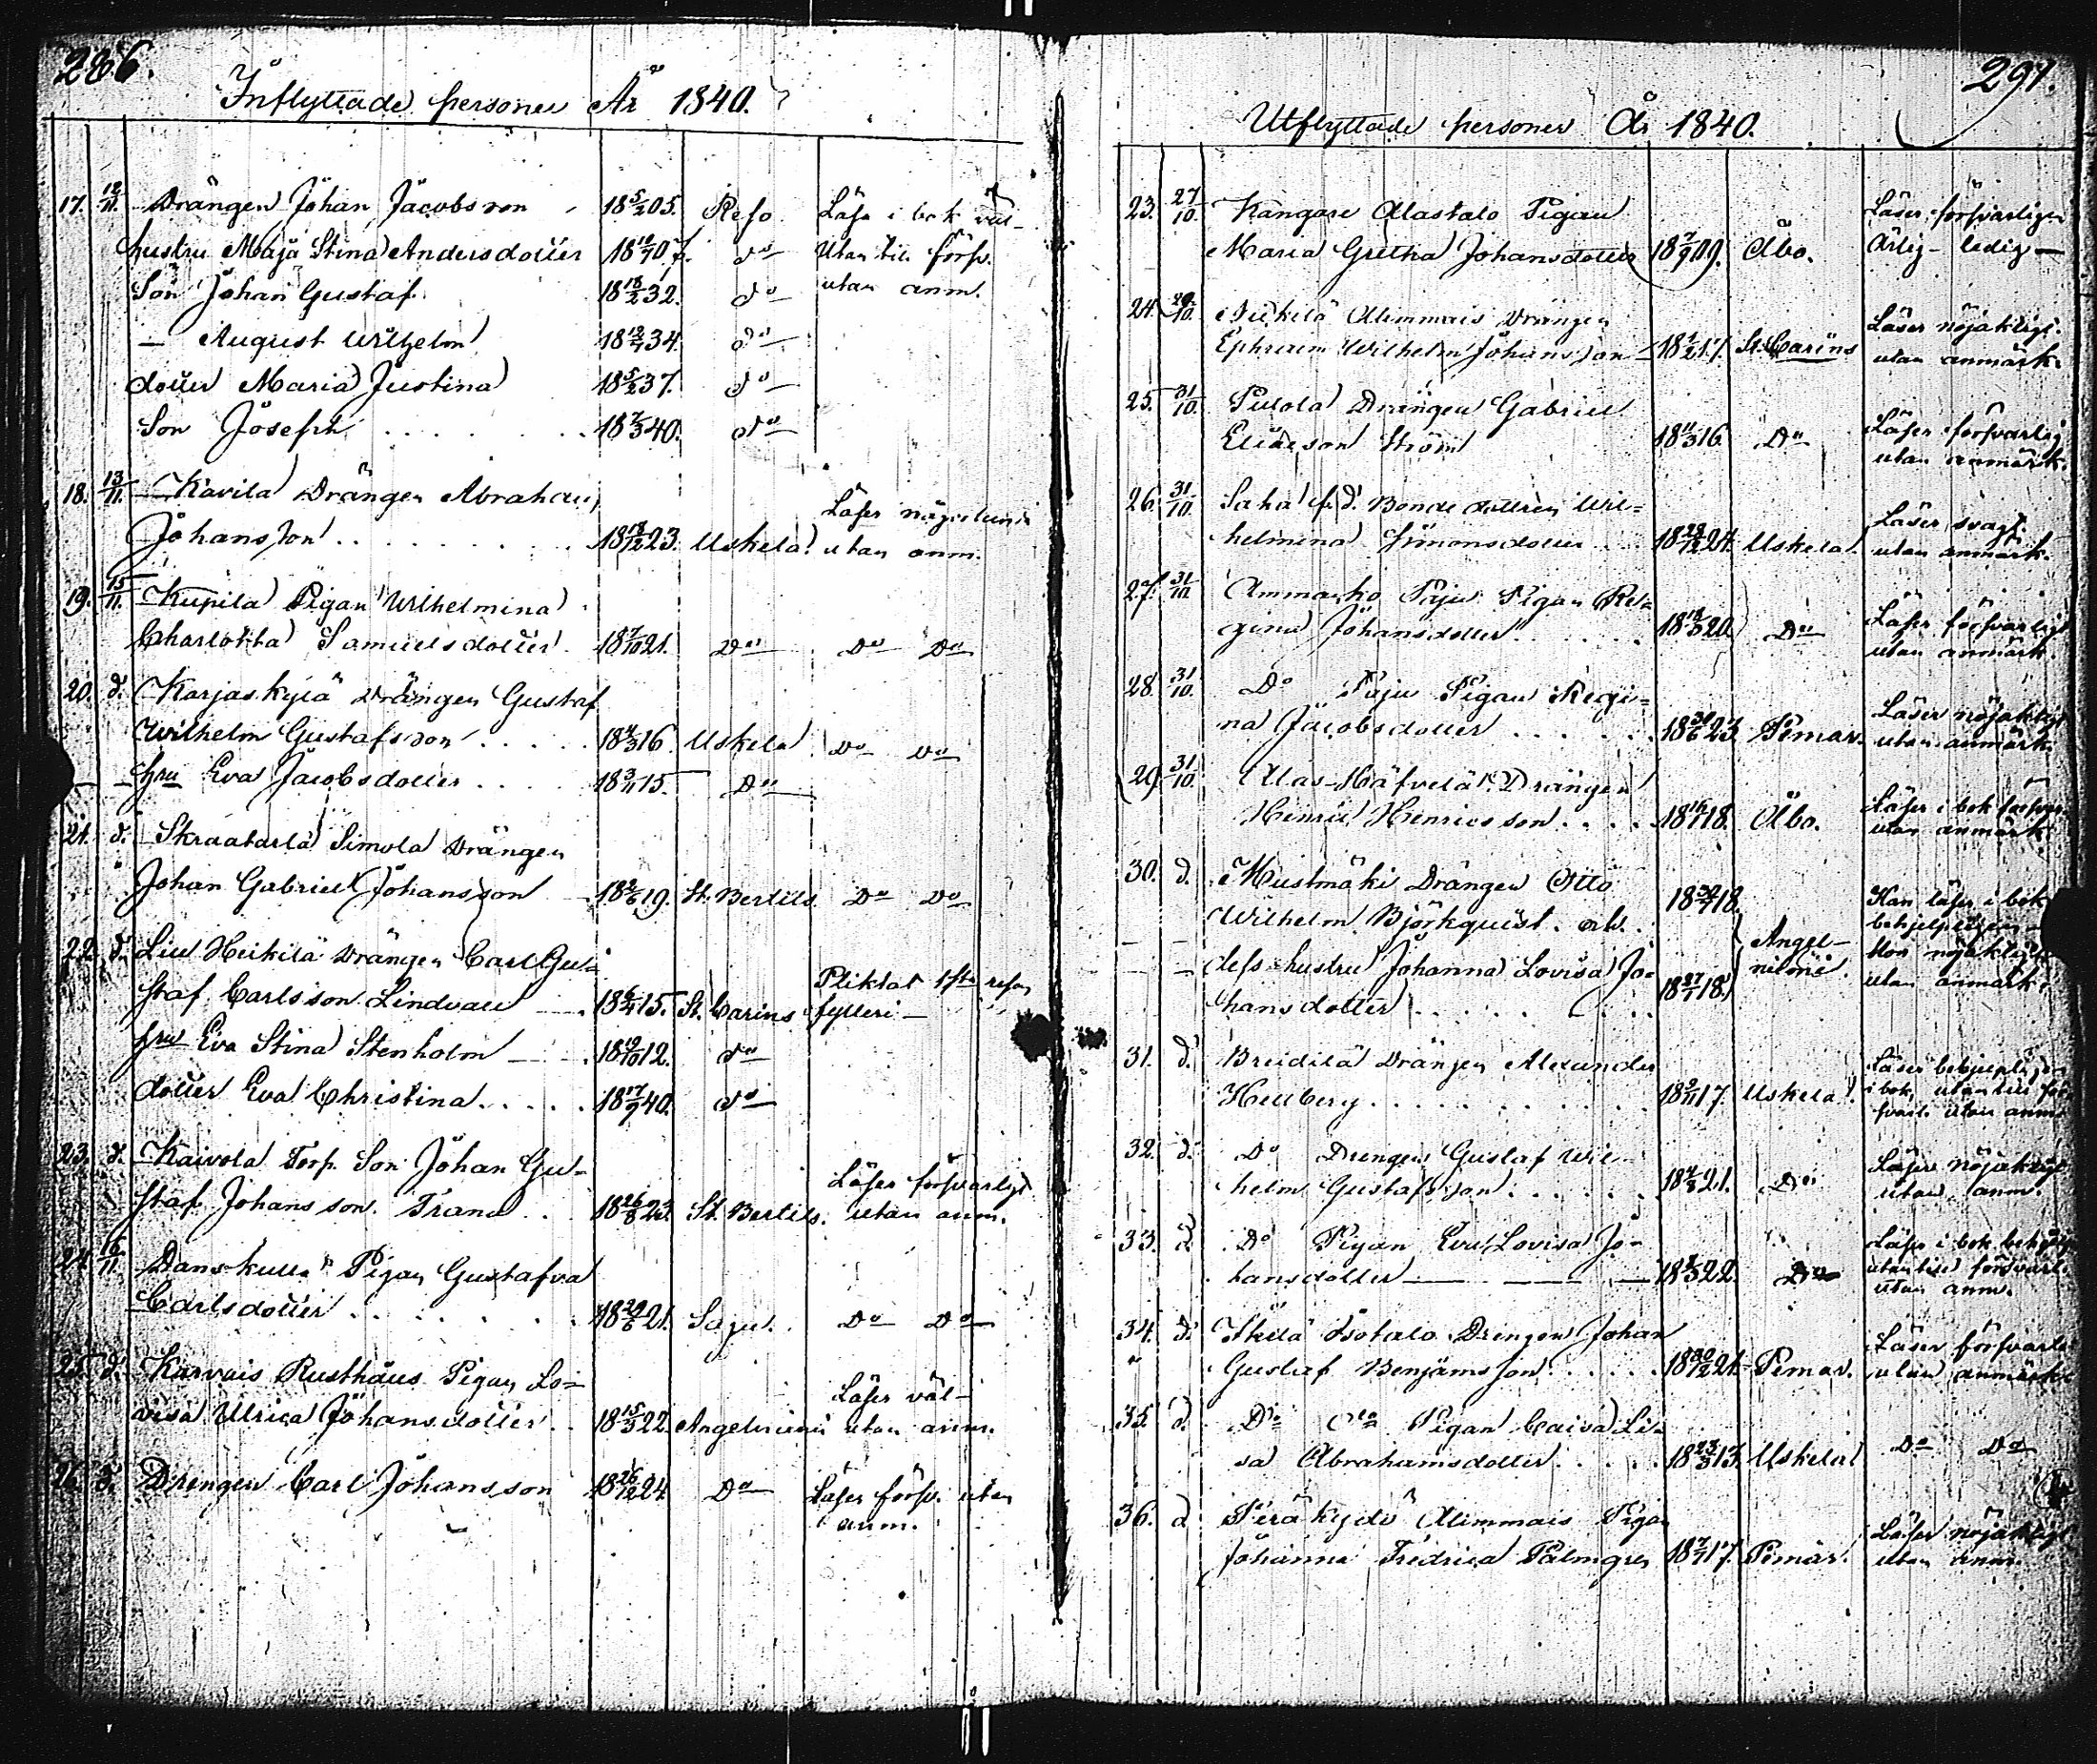 286.
Inflyttade personer År 1840.
17. 12/11. Drängen Johan Jacobsson 18 5/2 05. Reso. Läser i bok väl
hustru Maja Stina Andersdotter d° utantill försv.
Son Johan Gustaf 18 18/2 32. d° utan anm.
— August Wilhelm d°
dotter Maria Justina 18 5/2 37. d°
Son Joseph 18 7/3 40. d°
18. 13/11. Kavila Drängen Abraham
Johansson 18 18/12 23. Uskela. Läser någorlunda
utan anm.
19. 15/11. Kupila Pigan Wilhelmina
Charlotta Samuelsdotter 18 7/10 21. D° D° D°
20. d. Karjaskylä Drängen Gustaf
Wilhelm Gustafsson 18 4/3 16. Uskela D° D°
hru Eva Jacobsdotter 18 3/11 15. D°
21. d. Skraatarla Simola Drängen
Johan Gabriel Johansson St. Bertils D° D°
22. d. Liu Heikilä Drängen Carl Gu-
staf Carlsson Lindvall 18 6/4 15. St. Carins Pliktat 1sta resan
fylleri —
hru Eva Stina Stenholm 18 19/10 12. d°
dotter Eva Christina 18 17/9 40. d°
23. d. Kaivola Torp. Son Johan Gu-
staf Johansson Trana 18 26/8 23. St. Bertils. Läser försvarligt
utan anm.
24. 16/11. Danskulla Pigan Gustafva
Carlsdotter Sagu. D° D°
25. d. Karvais Rusthålls Pigan Lo-
visa Ulrica Johansdotter 18 15/3 22. Angelniemi Läser väl
utan anm.
26. d. Drengen Carl Johansson 18 26/12 24. D° Läser försv. utan
anm.
291.
Utflyttade personer År 1840.
23. 27/10. Kangare Alastalo Pigan
Maria Gretha Johansdotter 18 7/9 09. Åbo. Läser försvarligen
Ärlig — ledig —
24. 29/10. Alimmais Drängen
Ephraim Wilhelm Johansson 18 1/2 17. St. Carins Läser nöjaktligt.
utan anmärk.
25. 31/10. Pulola Drängen Gabriel
Eliaeson Ström 18 11/3 16. D° Läser försvarlig
utan anmärk.
26. 31/10. Saha Bonde dottren Wil-
helmina Simonsdotter Uskela. Läser svagt.
utan anmärk.
27. 31/10. Ammasko Paju Pigan Re-
gina Johansdotter 18 18/3 20. D° Läser försvarligt
utan anmärk.
28. 31/10. D° Paju Pigan Regi-
na Jacobsdotter Pemar. Läser nöjaktligt
utan anmärk.
29. 31/10. Alas-Häfvelä Drängen
Henric Henricsson Åbo. Läser i bok försvar.
utan anmärk.
30. d. Mustmäki Drängen Otto
Wilhelm Björkquist och
dess hustru Johanna Lovisa Jo-
hansdotter 18 27/1 18. Angel-
niemi. Han läser i bok
behjelpligen —
Hon nöjaktligen
utan anmärk.
31. d. Breidilä Drängen Alexander
Hellberg 18 9/11 17. Uskela. Läser behjelpligen
i bok, utantill för-
svarl. utan anm.
32. d. D° Drengen Gustaf Wil-
helm Gustafsson D° Läser nöjaktligt
utan anm.
33. d. D° Pigan Eva Lovisa Jo-
hansdotter D° Läser i bok behjelp.
utantill försvarl.
utan anm.
34. d. Isotalo Drengen Johan
Gustaf Benjamsson 18 30/12 21. Pemar. Läser försvarl.
utan anmärk.
35. d. D° D° Pigan Caisa Li-
sa Abrahamsdotter 18 23/3 13. Uskela D° D°
36. d. Alimmais Pigan
Johanna Fredrica Palmgren Pemar. Läser nöjaktligt
utan anm.